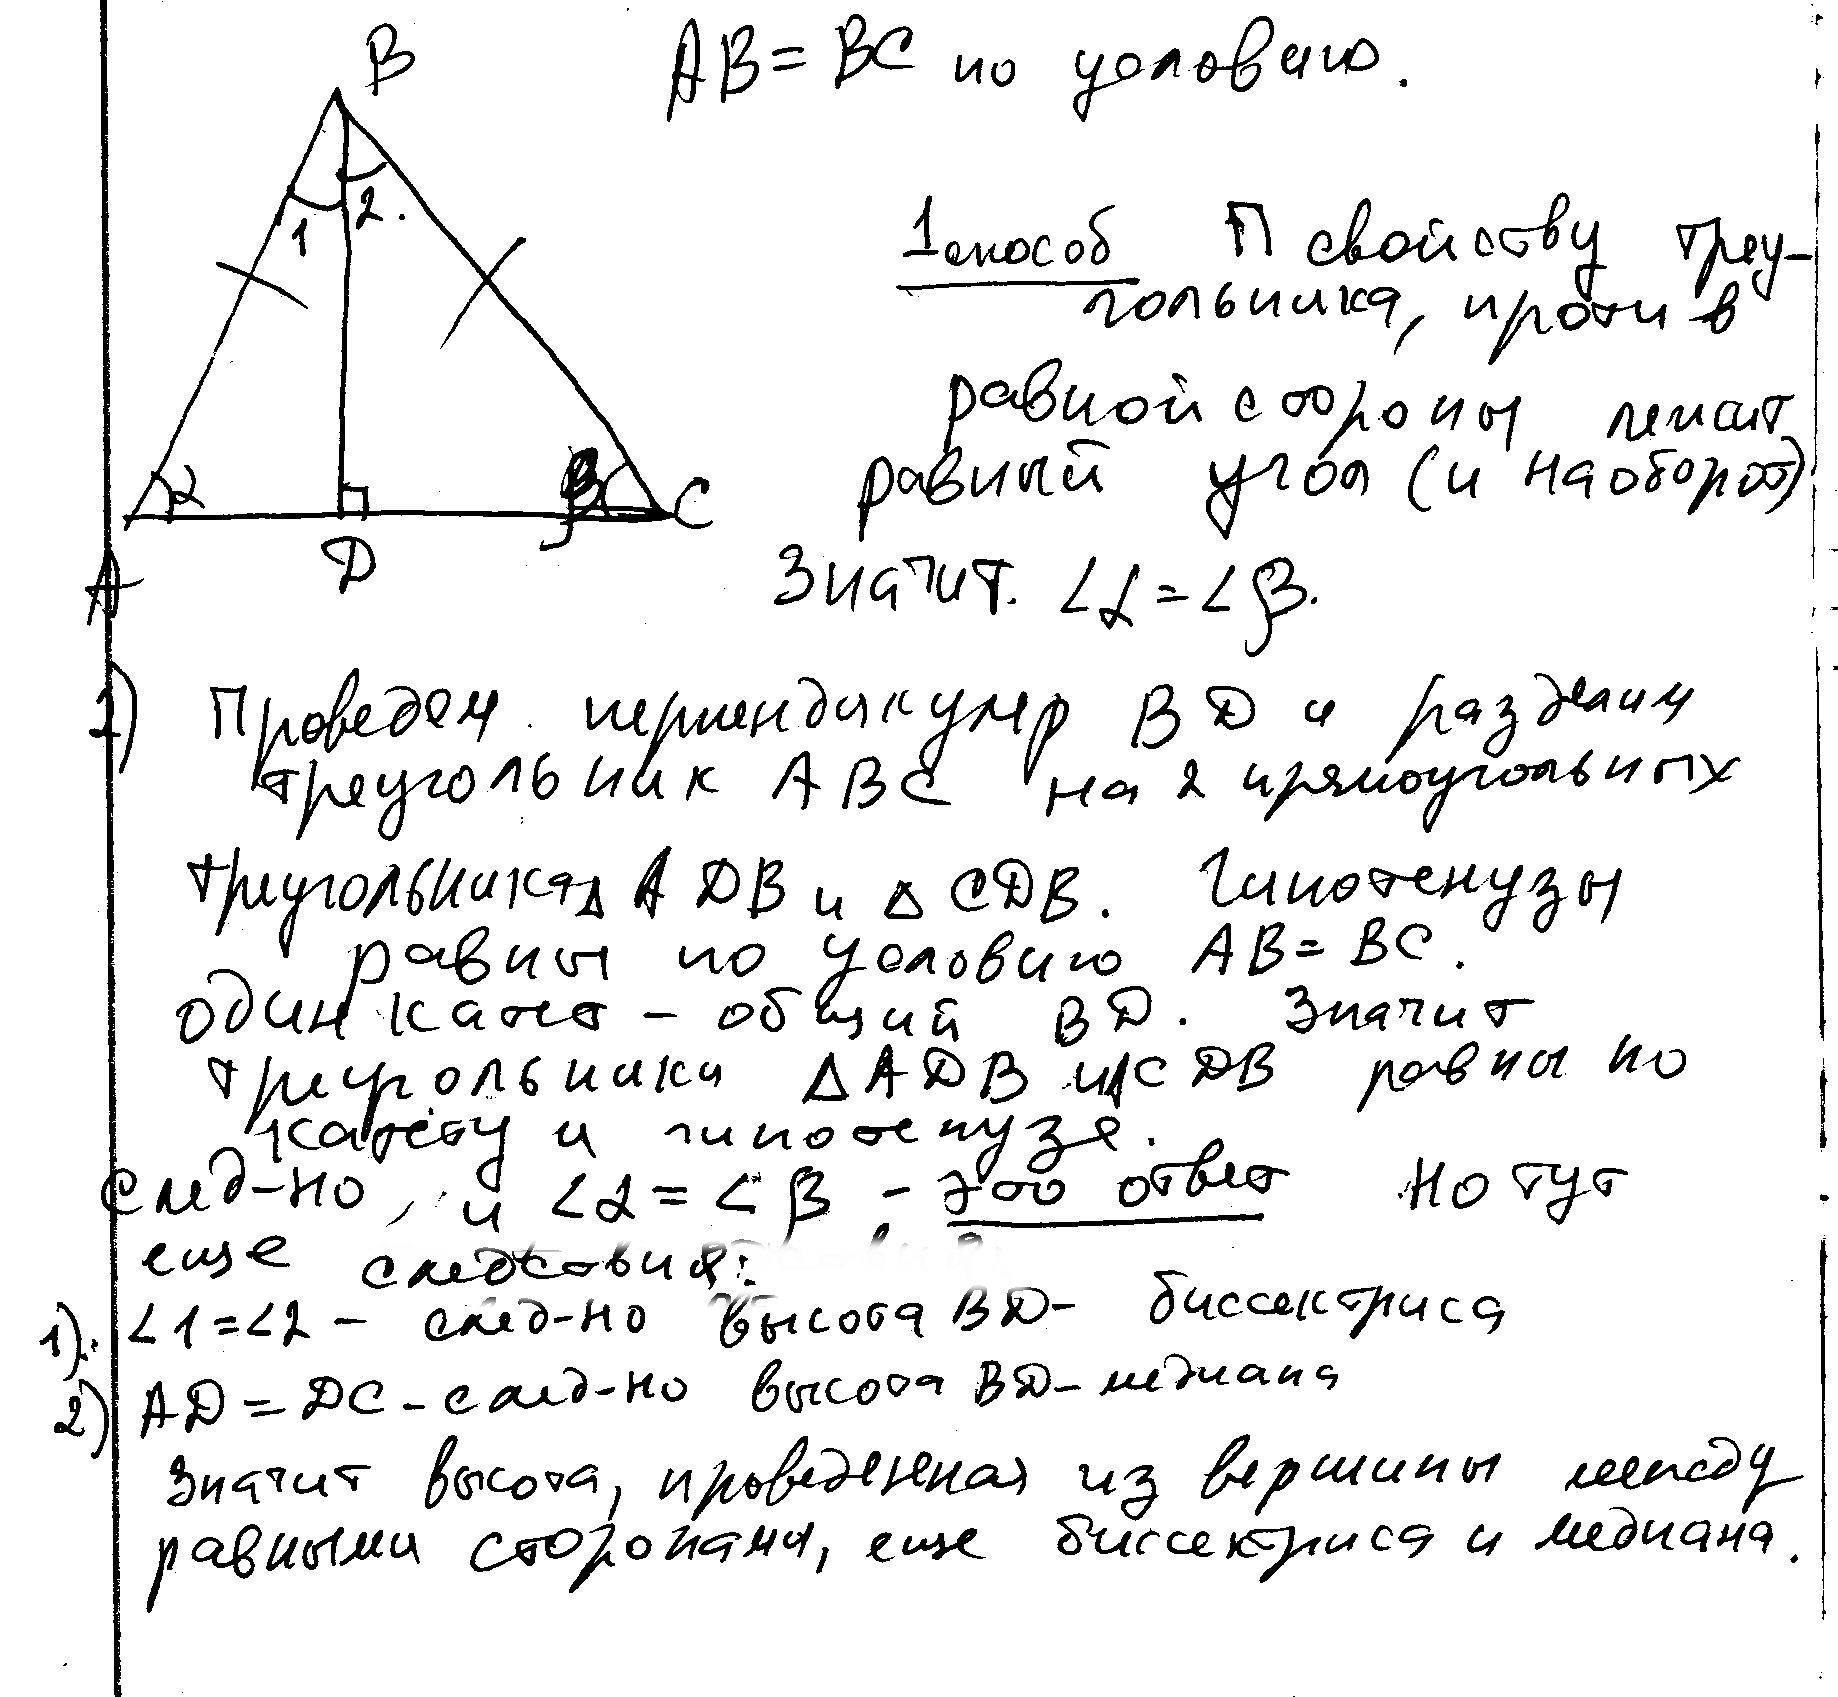 B
AB = BC по условию.
1 2.
1 способ П свойству треу-
гольника, против
равной стороны лежит
равный угол (и наоборот)
α β C
A D
Значит. ∠α = ∠β.
2) Проведем перпендикуляр BD и разделим
треугольник ABC на 2 прямоугольных
треугольника Δ ADB и Δ CDB. Гипотенузы
равны по условию AB = BC.
один катет – общий BD. Значит
треугольники Δ ADB и Δ CDB равны по
катету и гипотенузе.
след-но, и ∠α = ∠β – это ответ но тут
еще следствия:
1). ∠1 = ∠2 – след-но высота BD – биссектриса
2) AD = DC – след-но высота BD – медиана
Значит высота, проведенная из вершины между
равными сторонами, еще биссектриса и медиана.